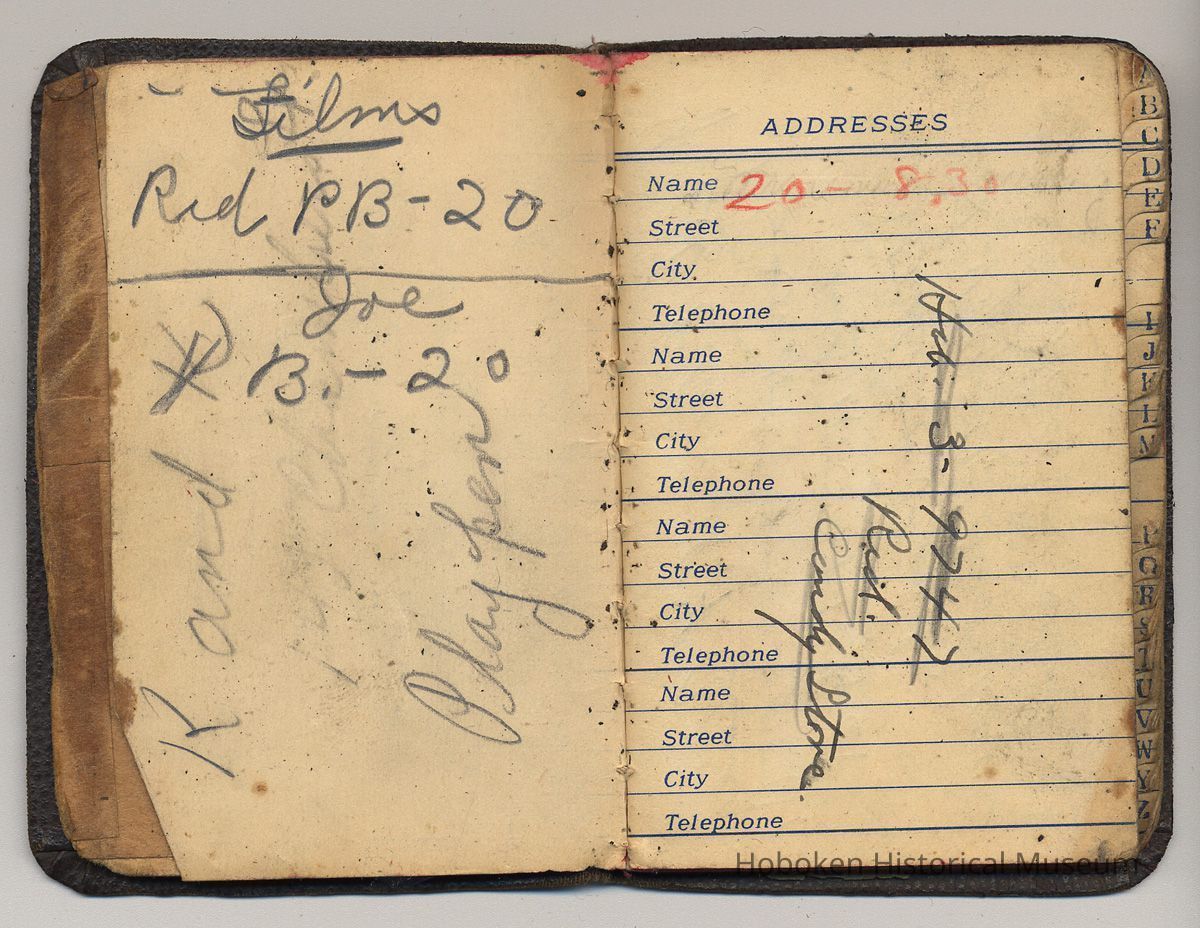 Films
Red PB-20
Joe
B.-20
R and R
Playpen
ADDRESSES
Name 20 - 8.30
Street
City
Telephone
Name
Street
City
Telephone
Name
Street
City
Telephone
Name
Street
City
Telephone
3-9747
Candy Store
B
C
D
E
F
I
J
K
L
M
P
Q
R
U
V
W
Y
Z
Hoboken Historical Museum